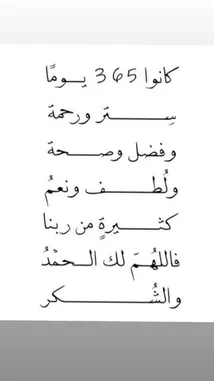 كانوا 365 يـومًا
سِـــتر ورحمة
وفضل وصـحة
ولُطـــف ونعمُ
كثـيرةٍ من ربنا
فاللهُـمَ لك الـحمْدُ
والشُـــكر